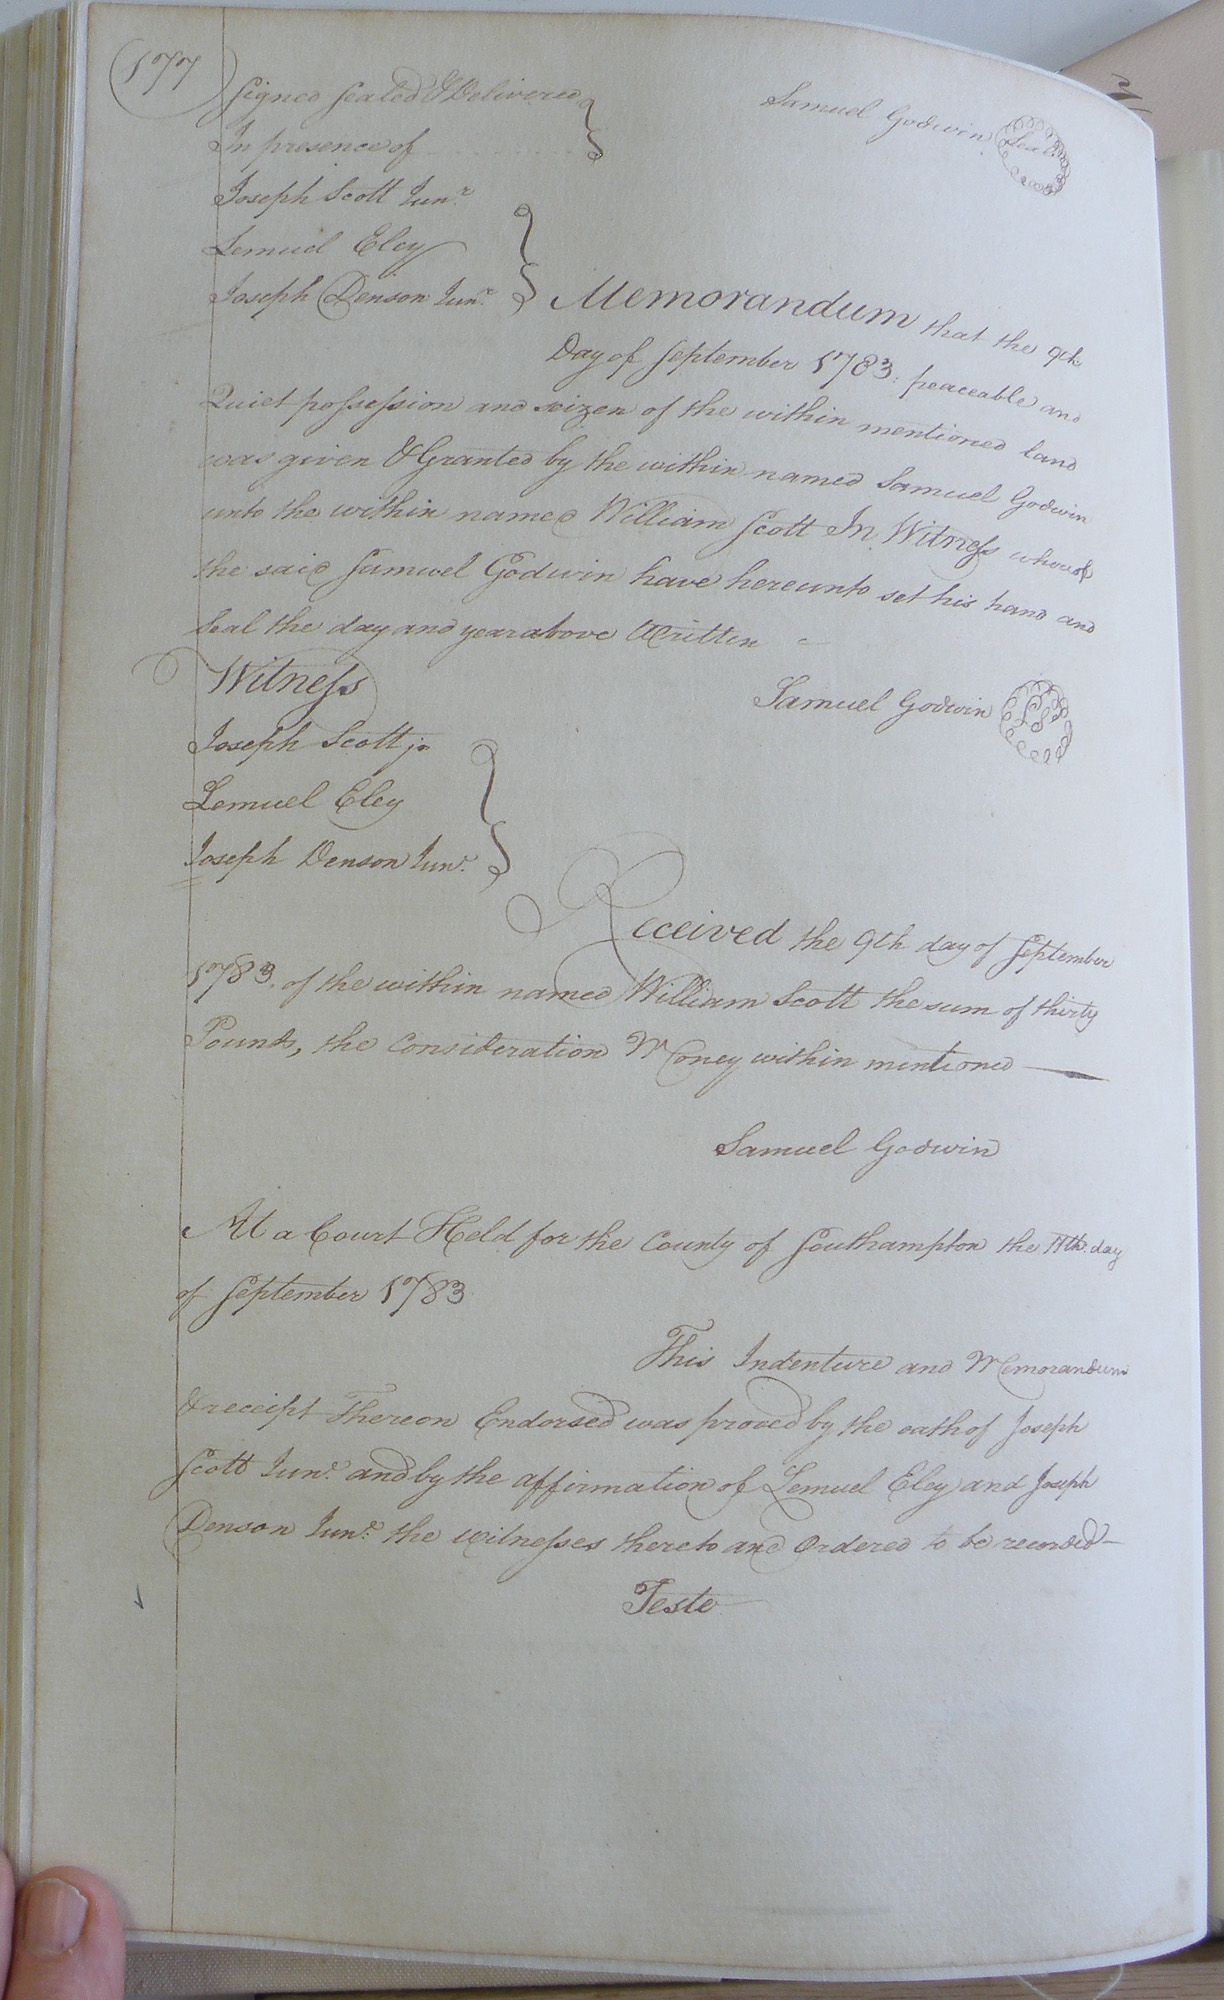 177
Signed Sealed & Delivered
In presence of
Samuel Godwin Seal
Joseph Scott Junr.
Lemuel Eley
Joseph Denson Junr.
Memorandum that the 9th
Day of September 1783. peaceable and
Quiet possession and seizen of the within mentioned land
was given & Granted by the within named Samuel Godwin
unto the within named William Scott In Witness whereof
the said Samuel Godwin have hereunto set his hand and
Seal the day and year above Written
Witness
Samuel Godwin LS
Joseph Scott jr
Lemuel Eley
Joseph Denson Junr.
Received the 9th day of September
1783. of the within named William Scott the sum of thirty
Pounds, the Consideration Money within mentioned
Samuel Godwin
At a Court Held for the County of Southampton the 11th day
of September 1783
This Indenture and Memorandum
& receipt Thereon Endorsed was proved by the oath of Joseph
Scott Junr. and by the affirmation of Lemuel Eley and Joseph
Denson Junr. the witnesses thereto and Ordered to be recorded
Teste